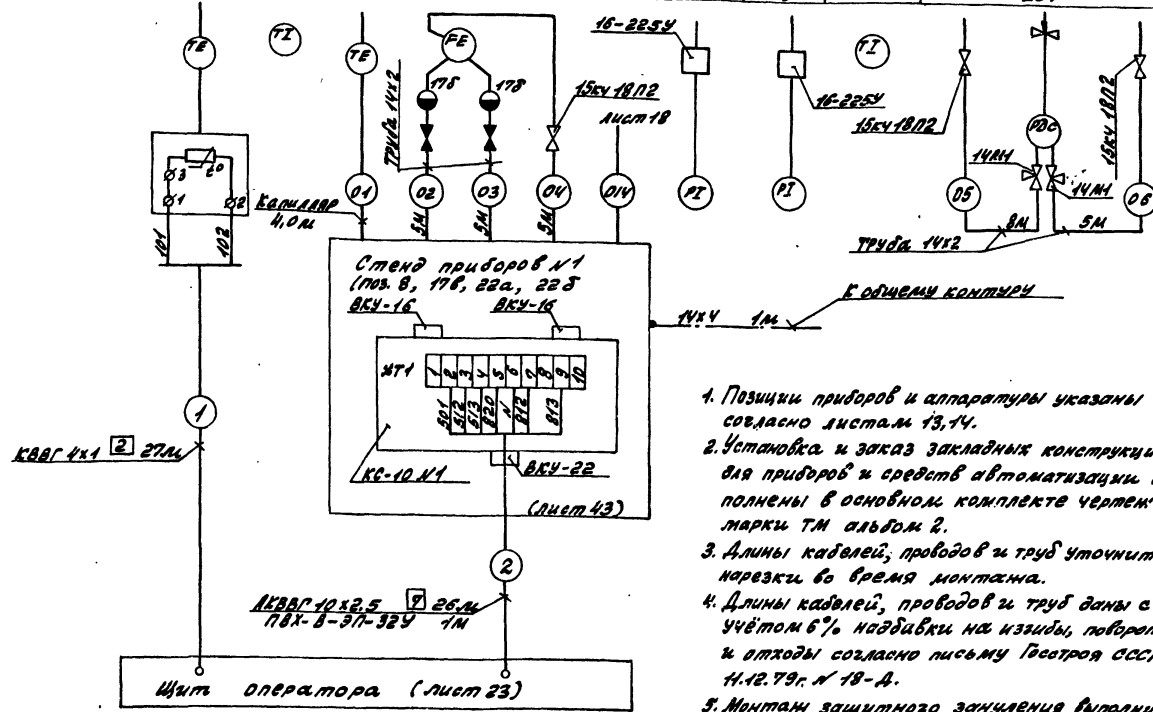 TE
TI
TE
FE
17б
17б
Труба 14х2
15кч 18П2
лист 18
16-225У
16-225У
TI
15кч 18П2
PDC
14М1
14М1
15кч 18П2
3
t°
1
2
101
102
Капилляр
4,0м
01
02
03
04
014
PI
PI
05
06
5м
5м
5м
8м
5м
Труба 14х2
Стенд приборов №1
(поз. 8, 17в, 22а, 22б
ВКУ-16
ВКУ-16
14х4 1м
К общему контуру
ХТ1
1 2 3 4 5 6 7 8 9 10
501 512 513 820 N 812 813
КС-10 №1
ВКУ-22
(лист 43)
1
КВВГ 4х1 2 27м
2
АКВВГ 10х2.5 7 26м
ПВХ-В-ЭП-32У 1м
Щит оператора (лист 23)
1. Позиции приборов и аппаратуры указаны
согласно листам 13,14.
2. Установка и заказ закладных конструкци
для приборов и средств автоматизации
полнены в основном комплекте чертеж
марки ТМ альбом 2.
3. Длины кабелей, проводов и труб уточнит
нарезки во время монтажа.
4. Длины кабелей, проводов и труб даны с
учётом 6% надбавки на изгибы, поворот
и отходы согласно письму Госстроя ССС
11.12.79г. № 18-Д.
5. Монтаж защитного зануления выполни